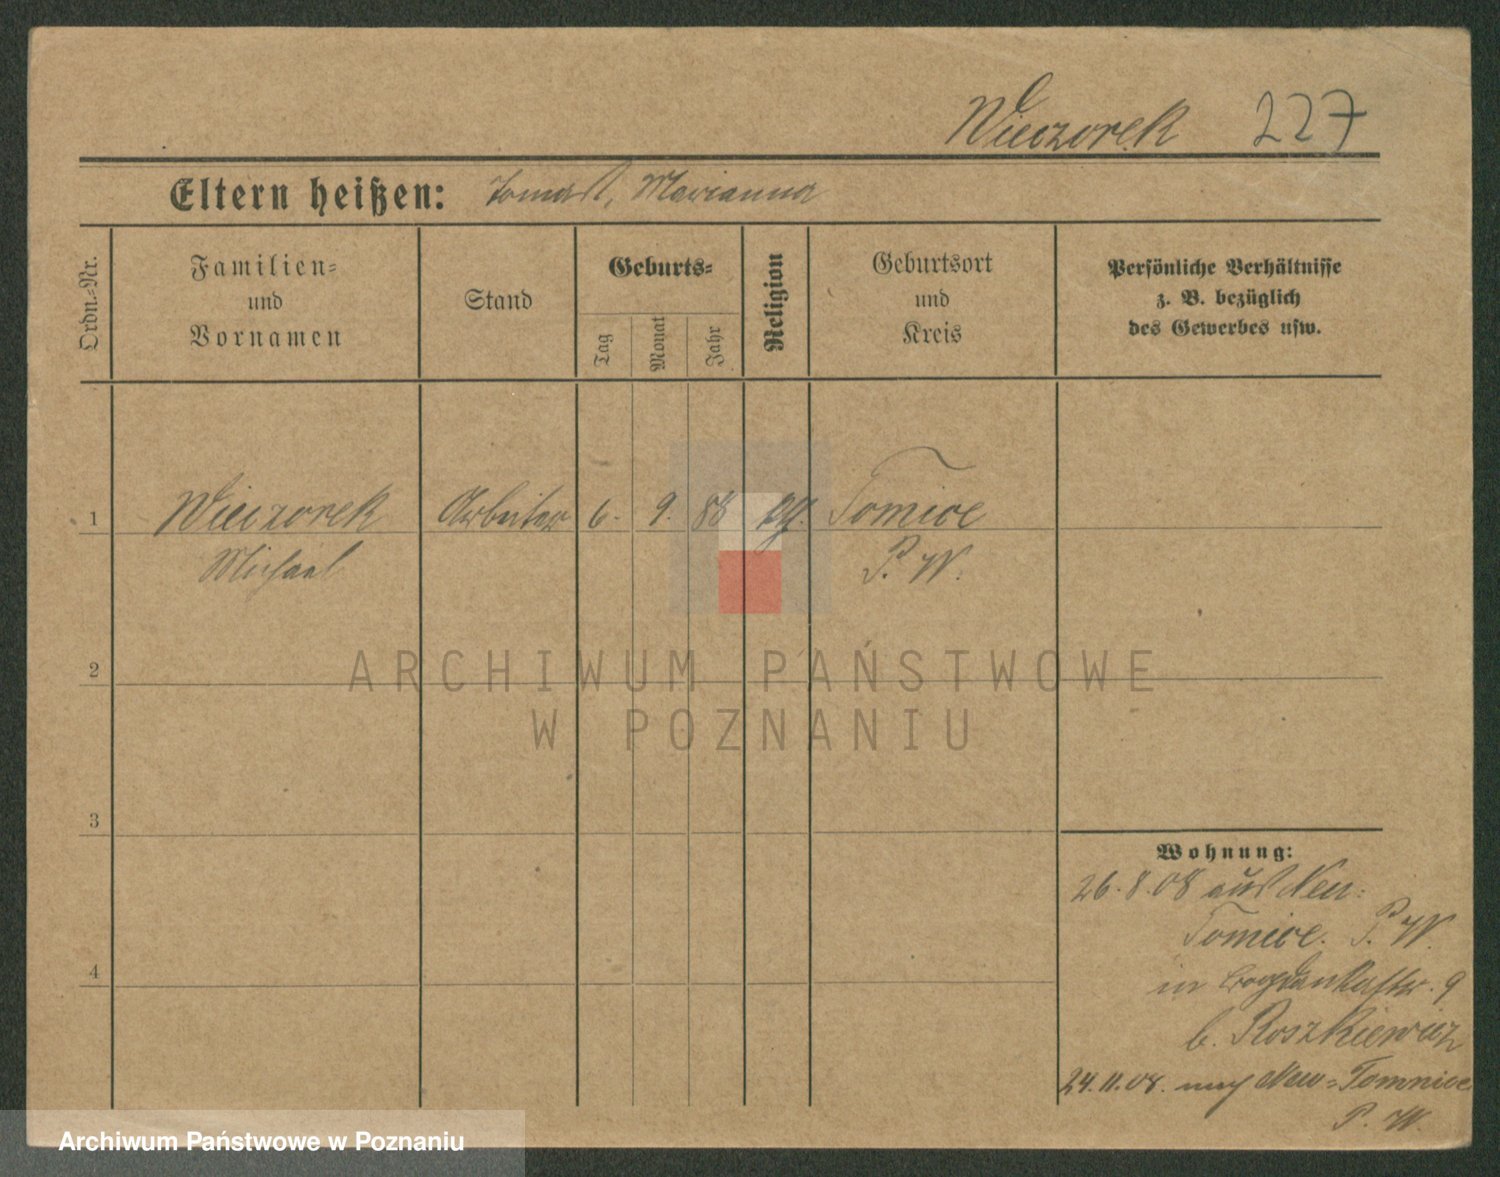 Wieczorek 227
Eltern heißen: Tomas, Marianna
Ordn.-Nr.
Familien-
und
Vornamen
Stand
Geburts-
Tag
Monat
Jahr
Religion
Geburtsort
und
Kreis
Persönliche Verhältnisse
z. B. bezüglich
des Gewerbes usw.
1 Wieczorek Arbeiter 6. 9. 88 Tomice
Michael P. W.
2
3
4
Wohnung:
26.8.08 aus Neu-
Tomice. P. W.
in Bogdankastr. 9
b. Roszkiewicz
24.11.08. nach Neu-Tomnice
P. W.
ARCHIWUM PAŃSTWOWE
W POZNANIU
Archiwum Państwowe w Poznaniu